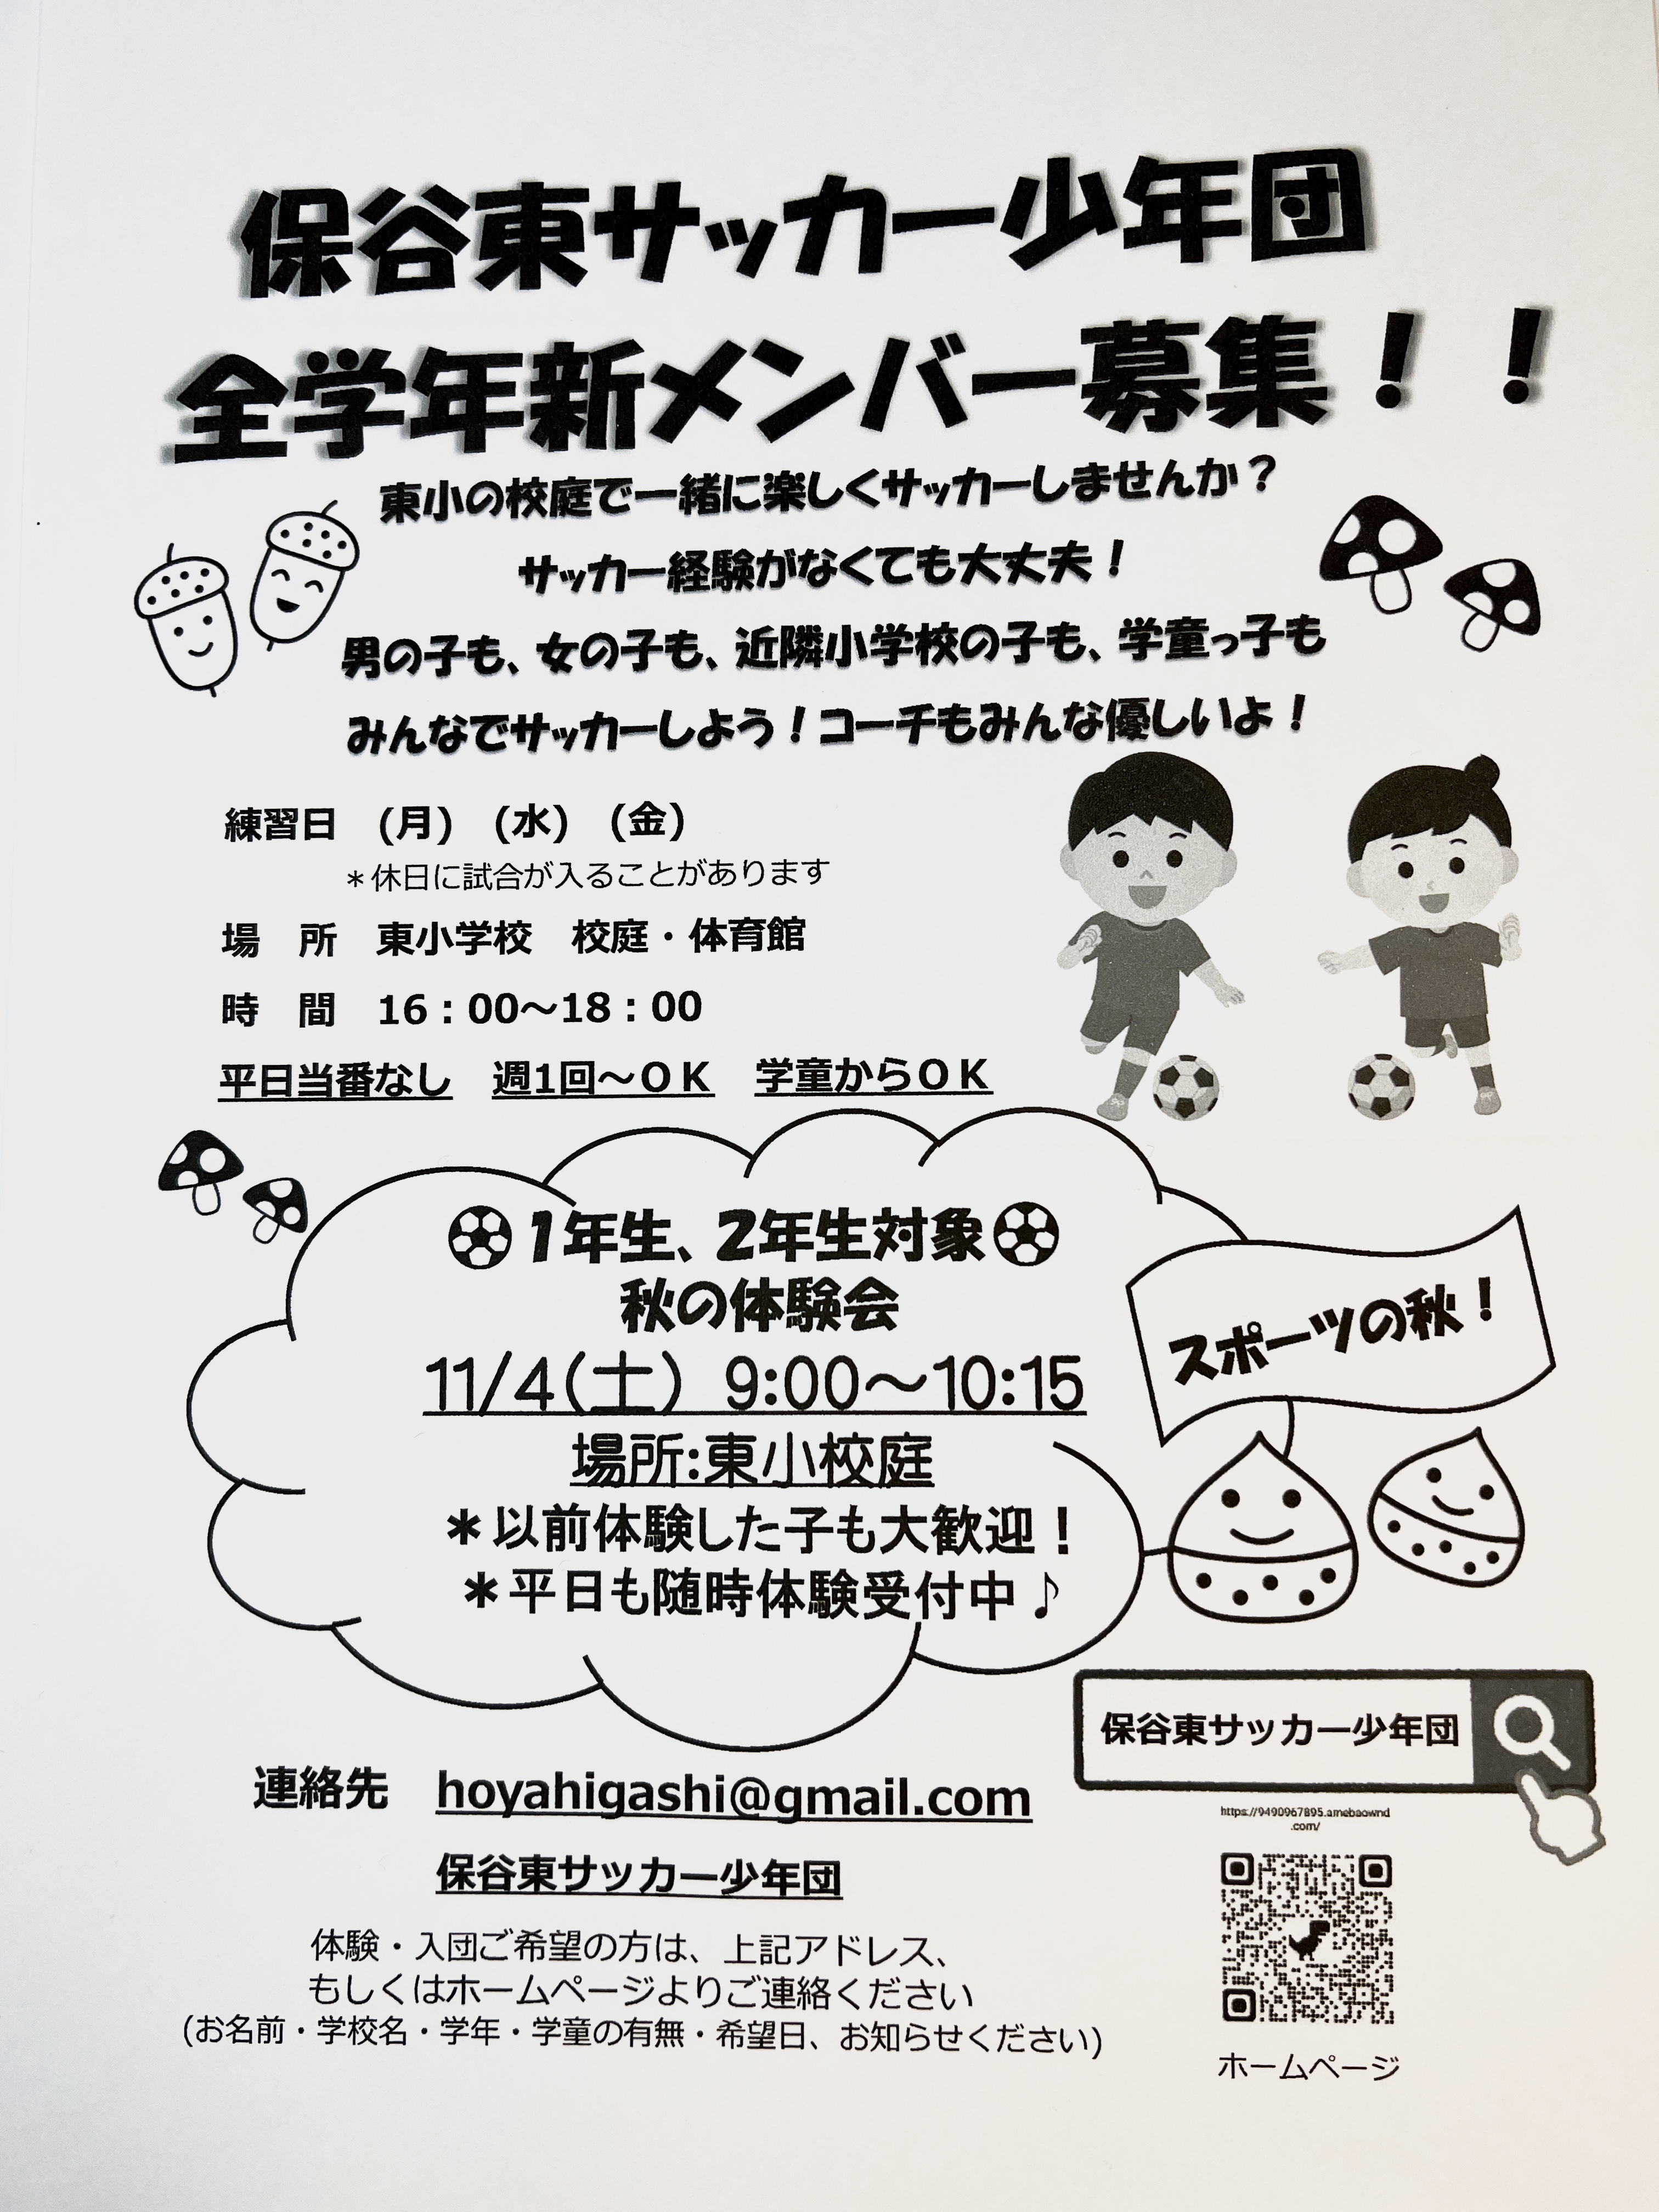 保谷東サッカー少年団
全学年新メンバー募集！！
東小の校庭で一緒に楽しくサッカーしませんか？
サッカー経験がなくても大丈夫！
男の子も、女の子も、近隣小学校の子も、学童っ子も
みんなでサッカーしよう！コーチもみんな優しいよ！
練習日　(月)　(水)　(金)
＊休日に試合が入ることがあります
場　所　東小学校　校庭・体育館
時　間　16：00～18：00
平日当番なし　週1回～ＯＫ　学童からＯＫ
1年生、2年生対象
秋の体験会
11/4(土)　9:00～10:15
場所:東小校庭
＊以前体験した子も大歓迎！
＊平日も随時体験受付中♪
スポーツの秋！
保谷東サッカー少年団
https://9490967895.amebaownd
.com/
ホームページ
連絡先　hoyahigashi@gmail.com
保谷東サッカー少年団
体験・入団ご希望の方は、上記アドレス、
もしくはホームページよりご連絡ください
(お名前・学校名・学年・学童の有無・希望日、お知らせください)